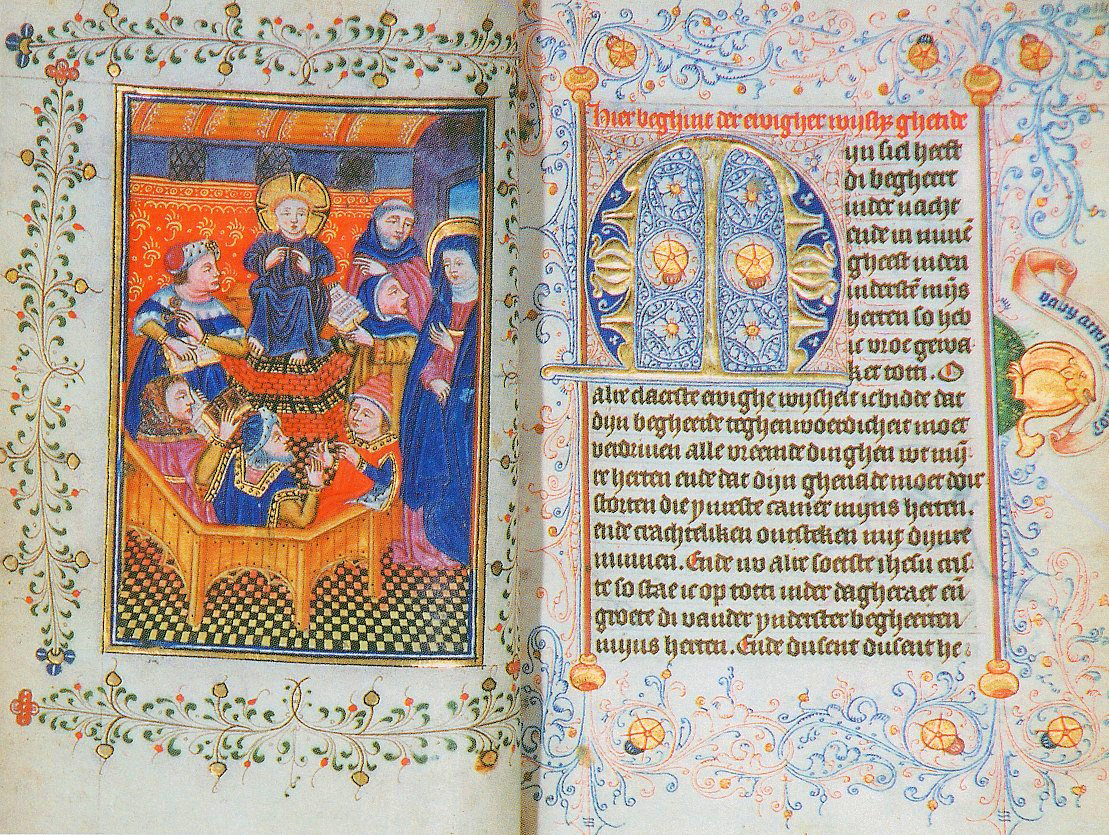 Hier beghint der ewigher wijsh' ghetide
Mijn siel heeft
di begheert
inder nacht
ende in minē
gheest inden
inderstē mijs
herten so heb
ic vroe gewa
ket totti. O
alre claerste ewighe wijsheit ic bidde dat
dijn begheerde teghenwoerdicheit moet
verdriuen alle vreemde dinghen wt mij
re herten ende dat dijn ghenade moet doir
storten die ynreste camer mijns herten.
ende crachteliken ontsteken mit dijnre
minnen. Ende nv alre soetste ihesu cris
te so stae ic op totti inder dagheraet eñ
groete di vander ynderster begheerten
mijns herten. Ende dusent dusent he